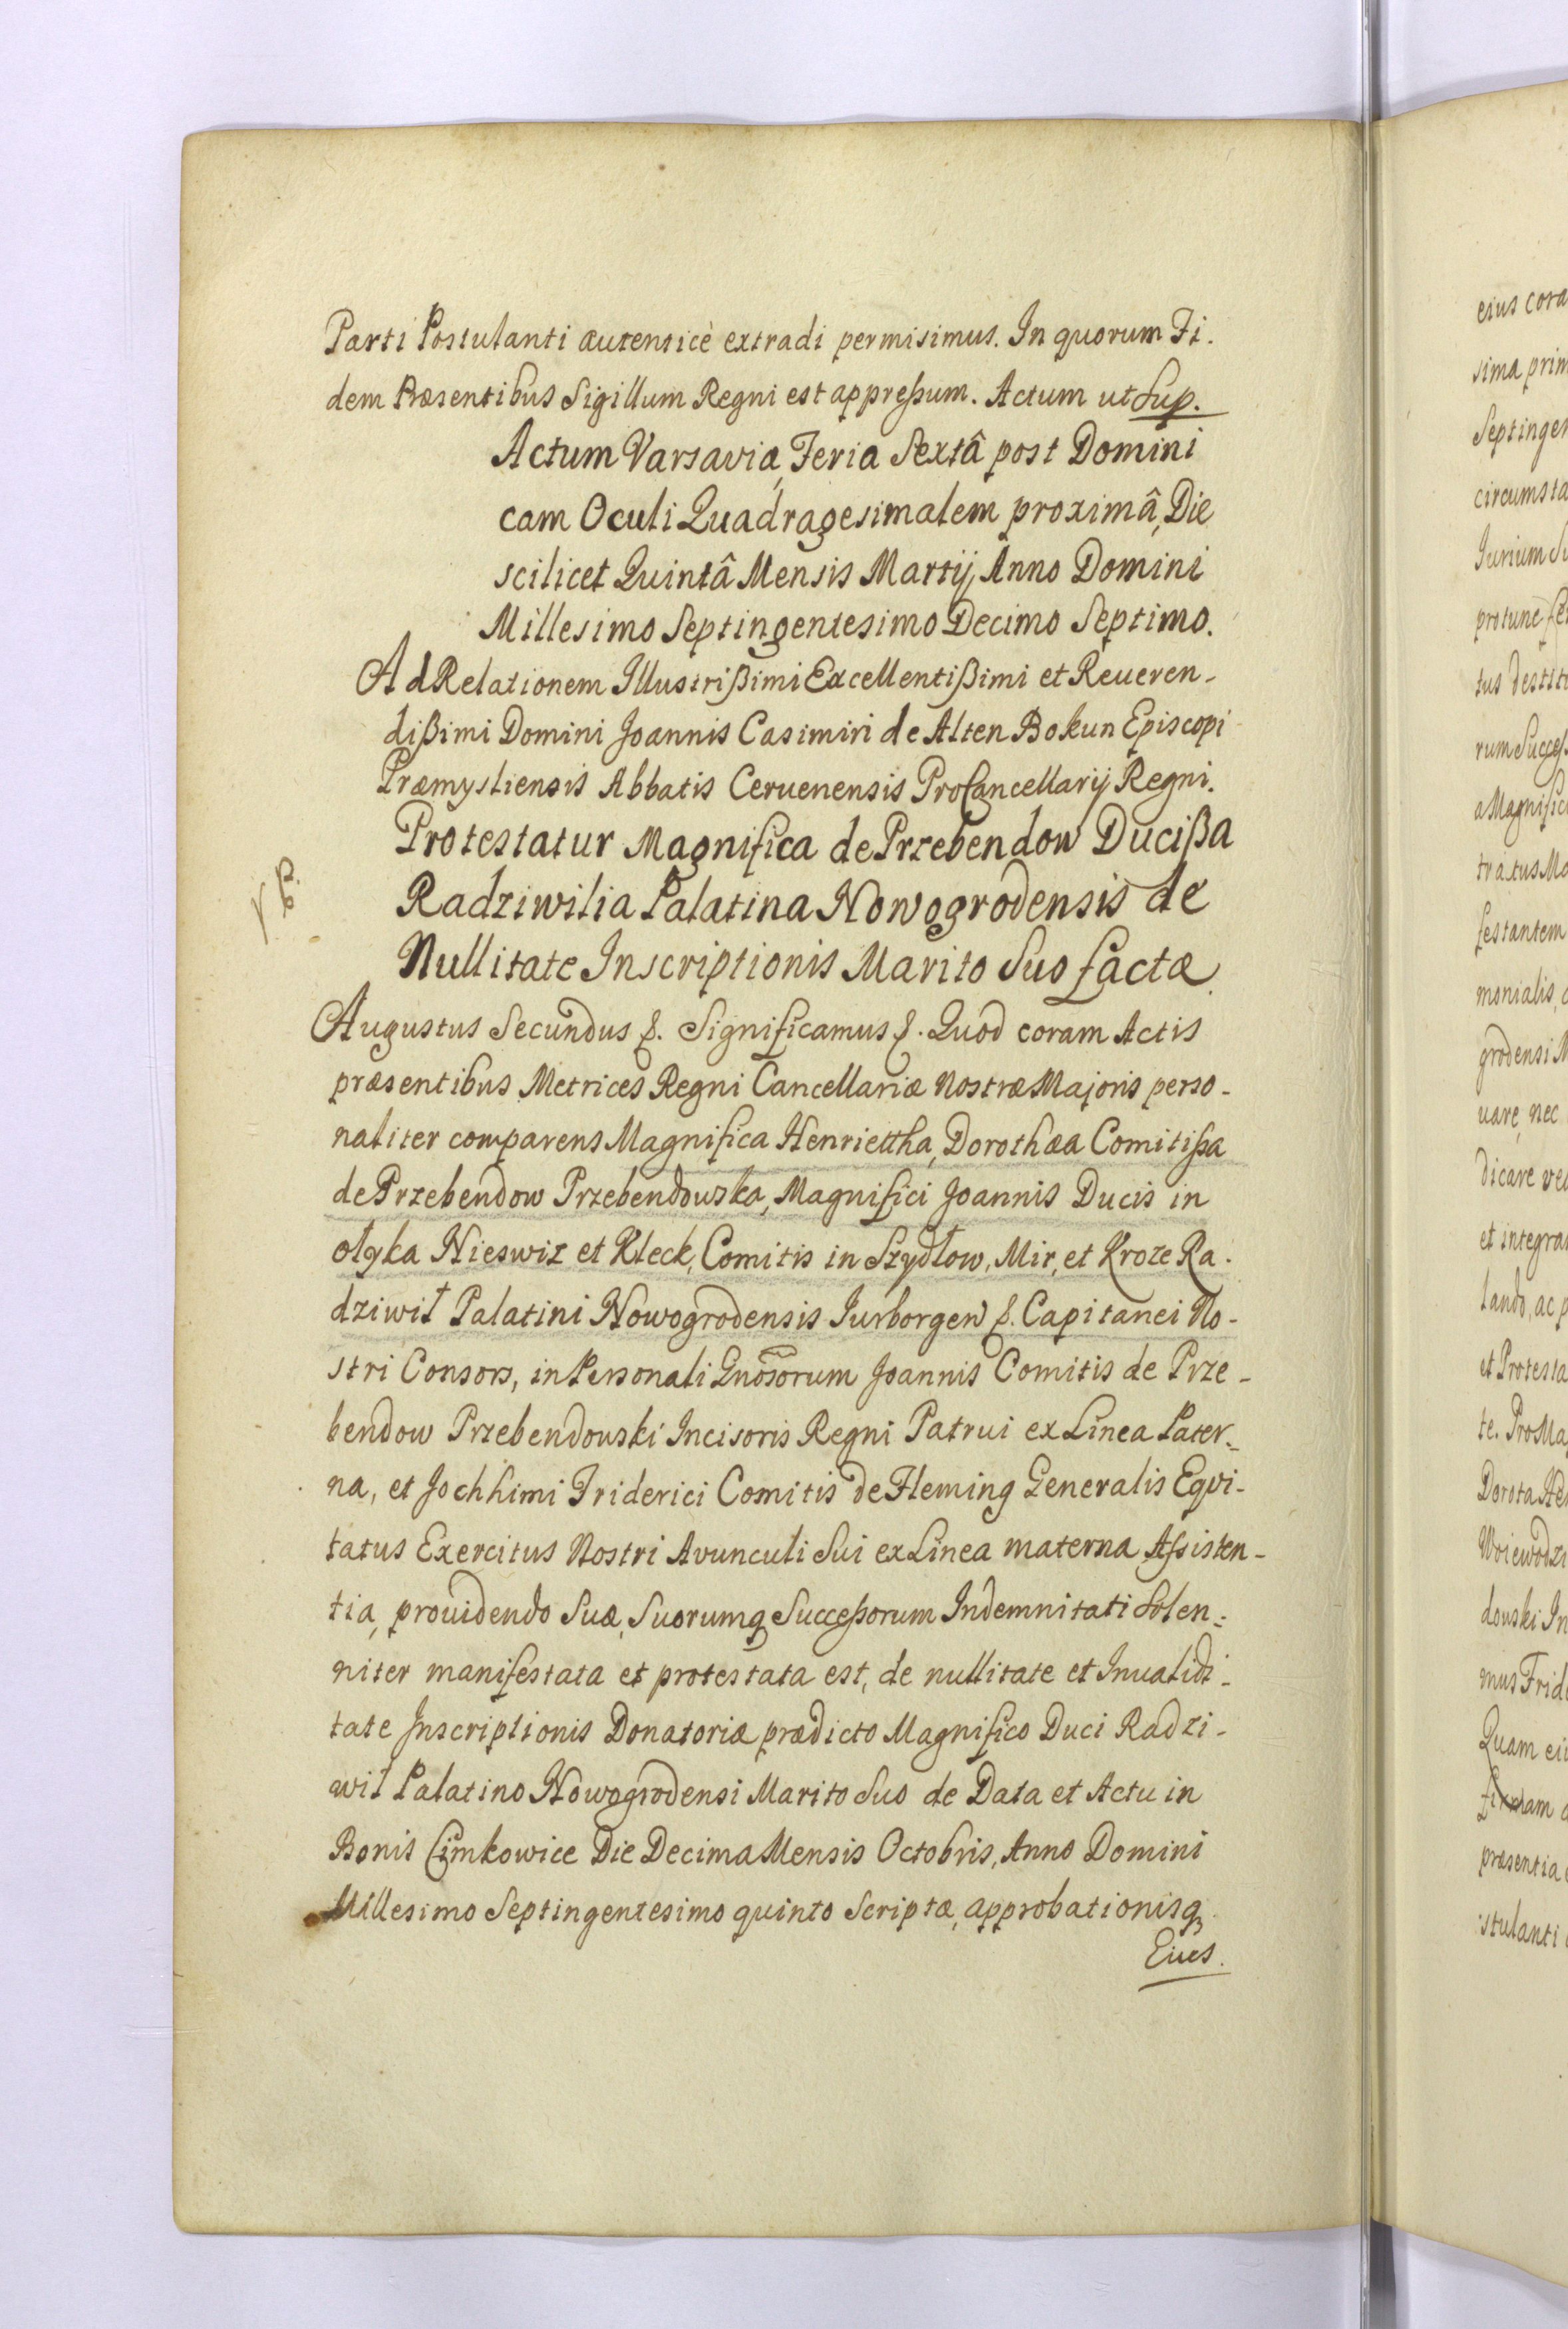 Parti Postulanti autenticè extradi permisimus. In quorum Fi.
dem Præsentibus Sigillum Regni est appreßum. Actum ut Sup.
Actum Varsaviæ Feria Sextâ post Domini
cam Oculi Quadragesimalem proximâ, Die
scilicet Quintâ Mensis Martij Anno Domini
Millesimo Septingentesimo Decimo Septimo.
Ad Relationem Illustrißimi Excellentißimi et Reueren-
dißimi Domini Joannis Casimiri de Alten Bokun Episcopi
Præmysliensis Abbatis Ceruenensis ProCancellarij Regni.
Protestatur Magnifica de Przebendow Ducißa
Radziwilia Palatina Nowogrodensis de
Nullitate Inscriptionis Marito Suo factæ
Augustus Secundus &. Significamus &. Quod coram Actis
præsentibus Metrices Regni Cancellariæ Nostræ Majoris perso-
naliter comparens Magnifica Henriettha, Dorothæa Comitißa
de Przebendow Przebendowska, Magnifici Joannis Ducis in
ołyka Nieswiz et Kleck, Comitis in Szydłow, Mir, et Kroze Ra.
dziwił Palatini Nowogrodensis Jurborgen &. Capitanei No-
stri Consors, in Personali Gnosorum Joannis Comitis de Prze-
bendow Przebendowski Incisoris Regni Patrui ex Linea Pater-
na, et Jochhimi Friderici Comitis de Fleming Generalis Eqvi-
tatus Exercitus Nostri Avunculi Sui ex Linea materna Aßisten-
tia, prouidendo Suæ, Suorumq Successorum Indemnitati Solen-
niter manifestata et protestata est, de nullitate et Inualidi-
tate Inscriptionis Donatoriæ prædicto Magnifico Duci Radzi-
wił Palatino Nowogrodensi Marito Suo de Data et Actu in
Bonis Cimkowice Die Decima Mensis Octobris, Anno Domini
Millesimo Septingentesimo quinto Scriptæ, approbationisq
Eius.
eius cora
sima prim
Septingen
circumsta
Jurium Su
protunc
tus destit
rum Succes
a Magnific
tratus Ma
festantem
monialis
grodensi M
uare, nec
dicare ve
et integra
lando, ac p
et Protesta
te. Pro Ma
Dorota Hen
Woiewodzi
dowski In
mus Frid
Quam ei
præsentia
stulanti